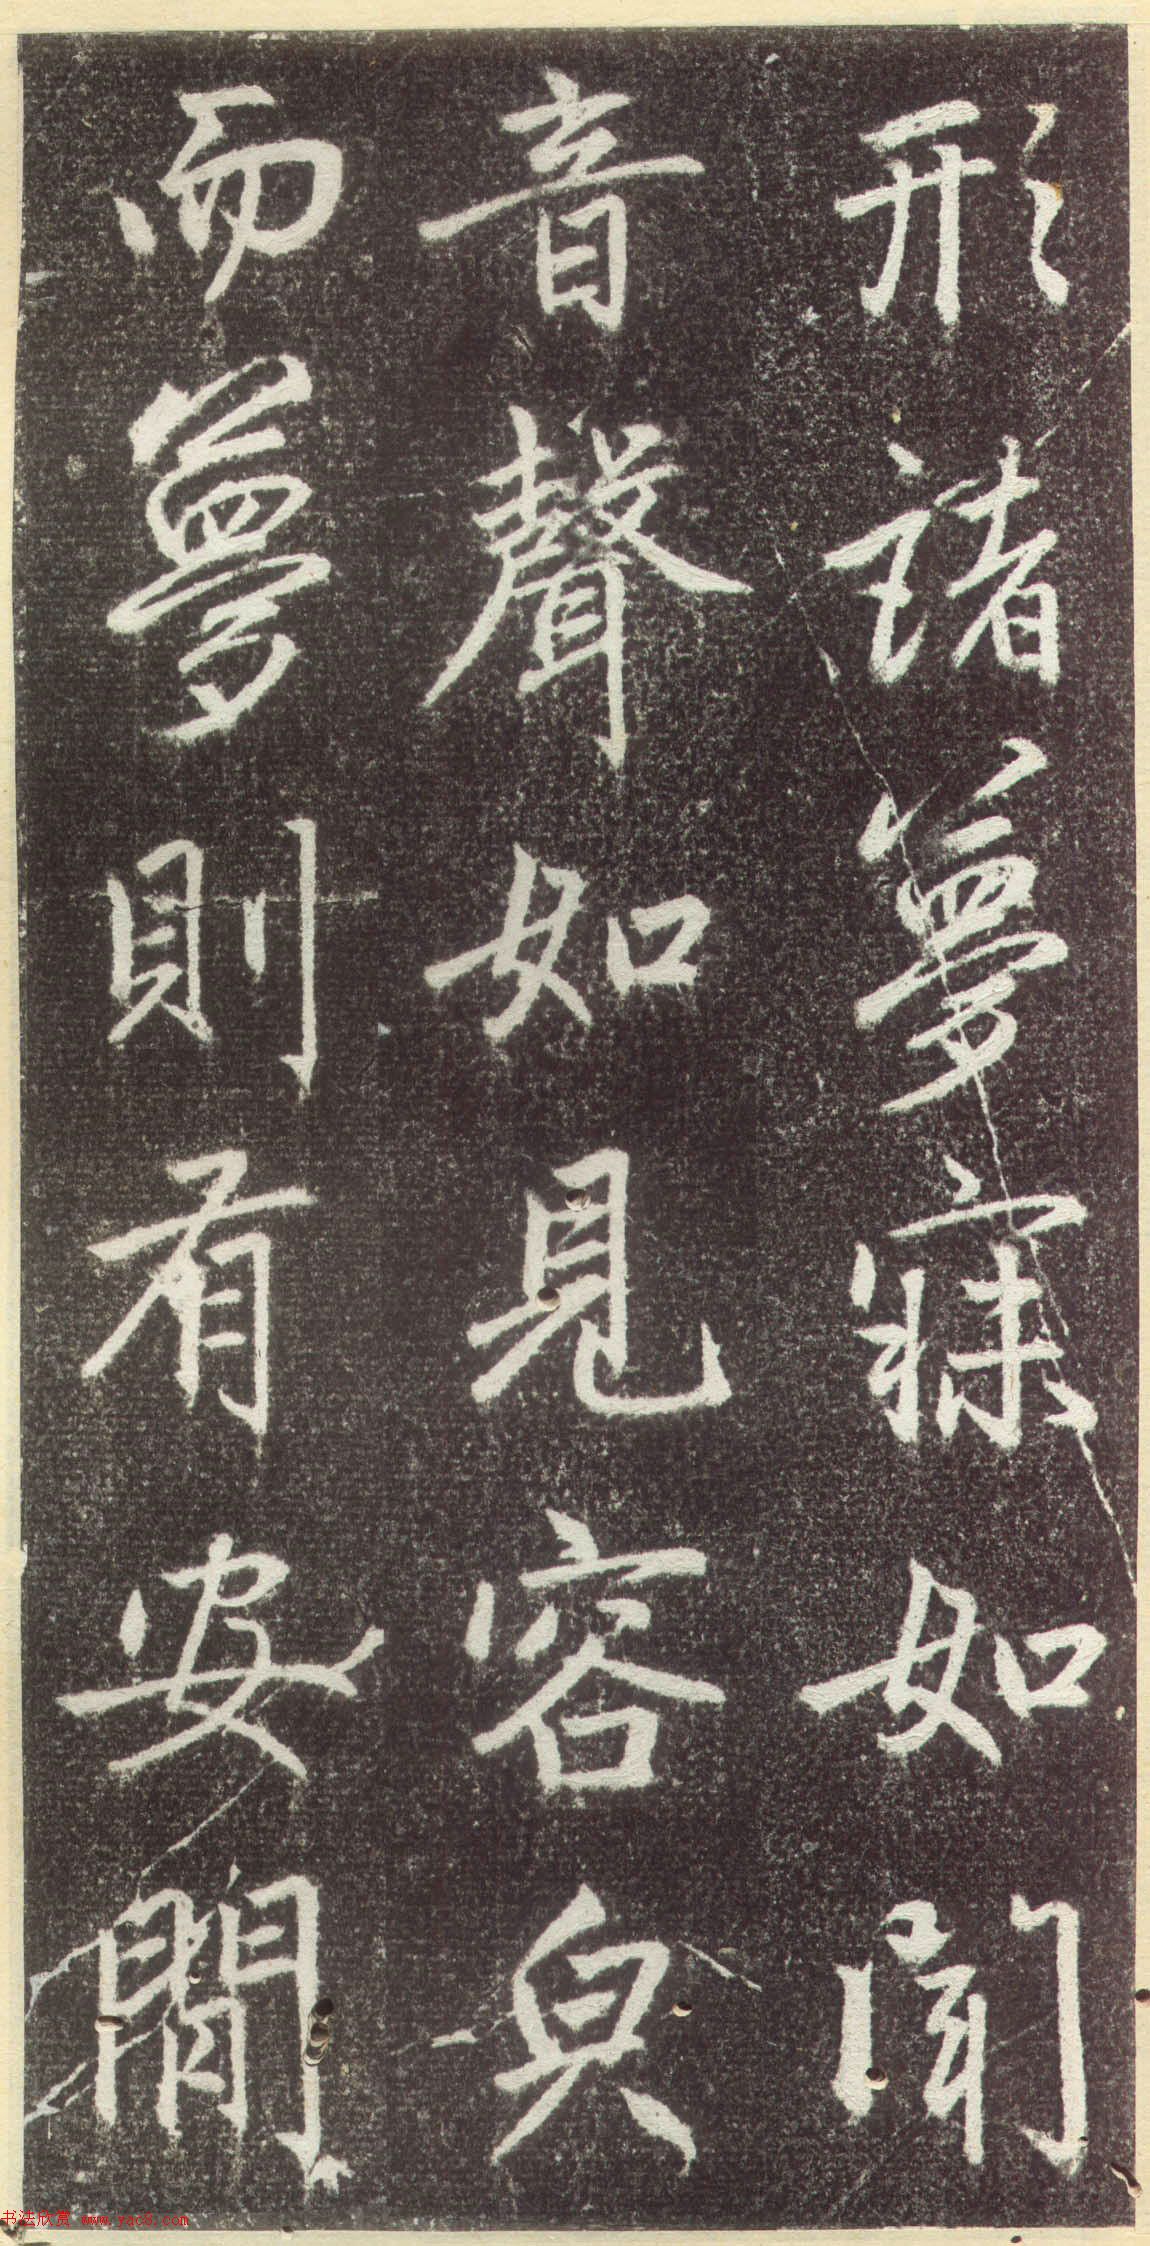 形諸夢寐如聞
音聲如見容皃
而夢則有安閒
书法欣赏 www.yac8.com